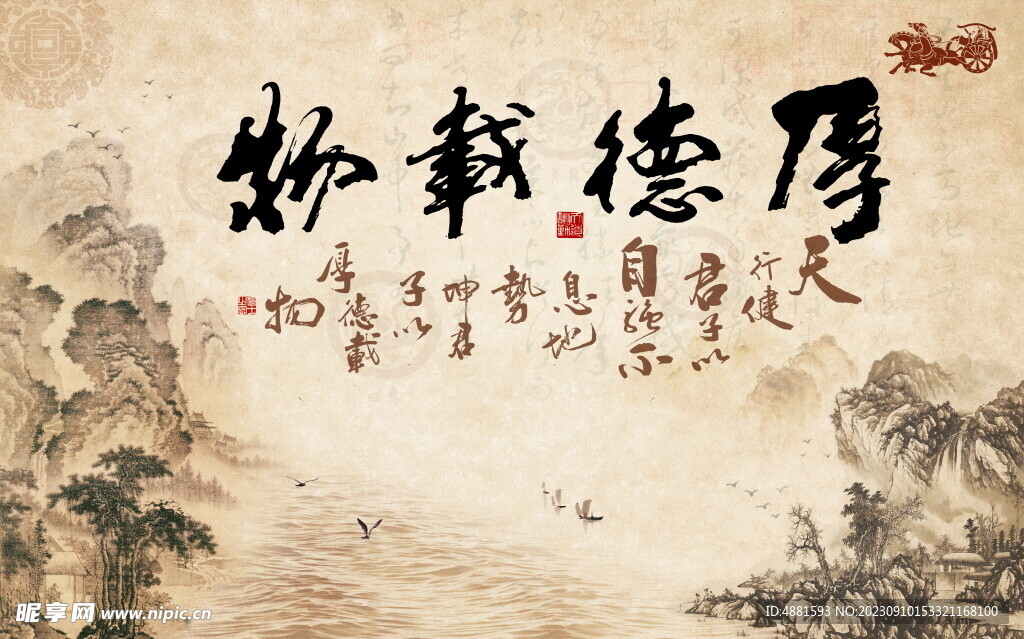 厚德載物
天
行健
君子以
自強不
息地
勢
坤君
子以
厚德載
物
昵享网 www.nipic.cn
ID:4881593 NO:20230910153321168100